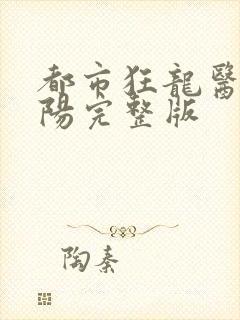 都市狂龍醫
陽完整版
陶秦